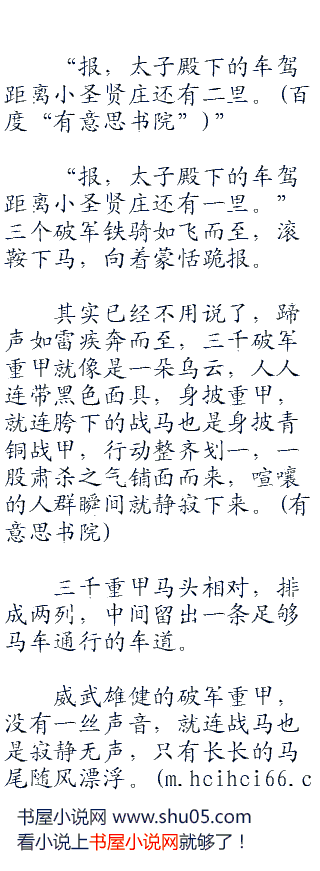 “报，太子殿下的车驾
距离小圣贤庄还有二里。(百
度“有意思书院”)”
“报，太子殿下的车驾
距离小圣贤庄还有一里。”
三个破军铁骑如飞而至，滚
鞍下马，向着蒙恬跪报。
其实已经不用说了，蹄
声如雷疾奔而至，三千破军
重甲就像是一朵乌云，人人
连带黑色面具，身披重甲，
就连胯下的战马也是身披青
铜战甲，行动整齐划一，一
股肃杀之气铺面而来，喧嚷
的人群瞬间就静寂下来。(有
意思书院)
三千重甲马头相对，排
成两列，中间留出一条足够
马车通行的车道。
威武雄健的破军重甲，
没有一丝声音，就连战马也
是寂静无声，只有长长的马
尾随风漂浮。(m.hcihci66.c
书屋小说网 www.shu05.com
看小说上书屋小说网就够了！